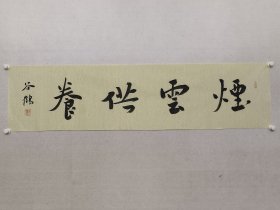 煙雲供養
谷殇